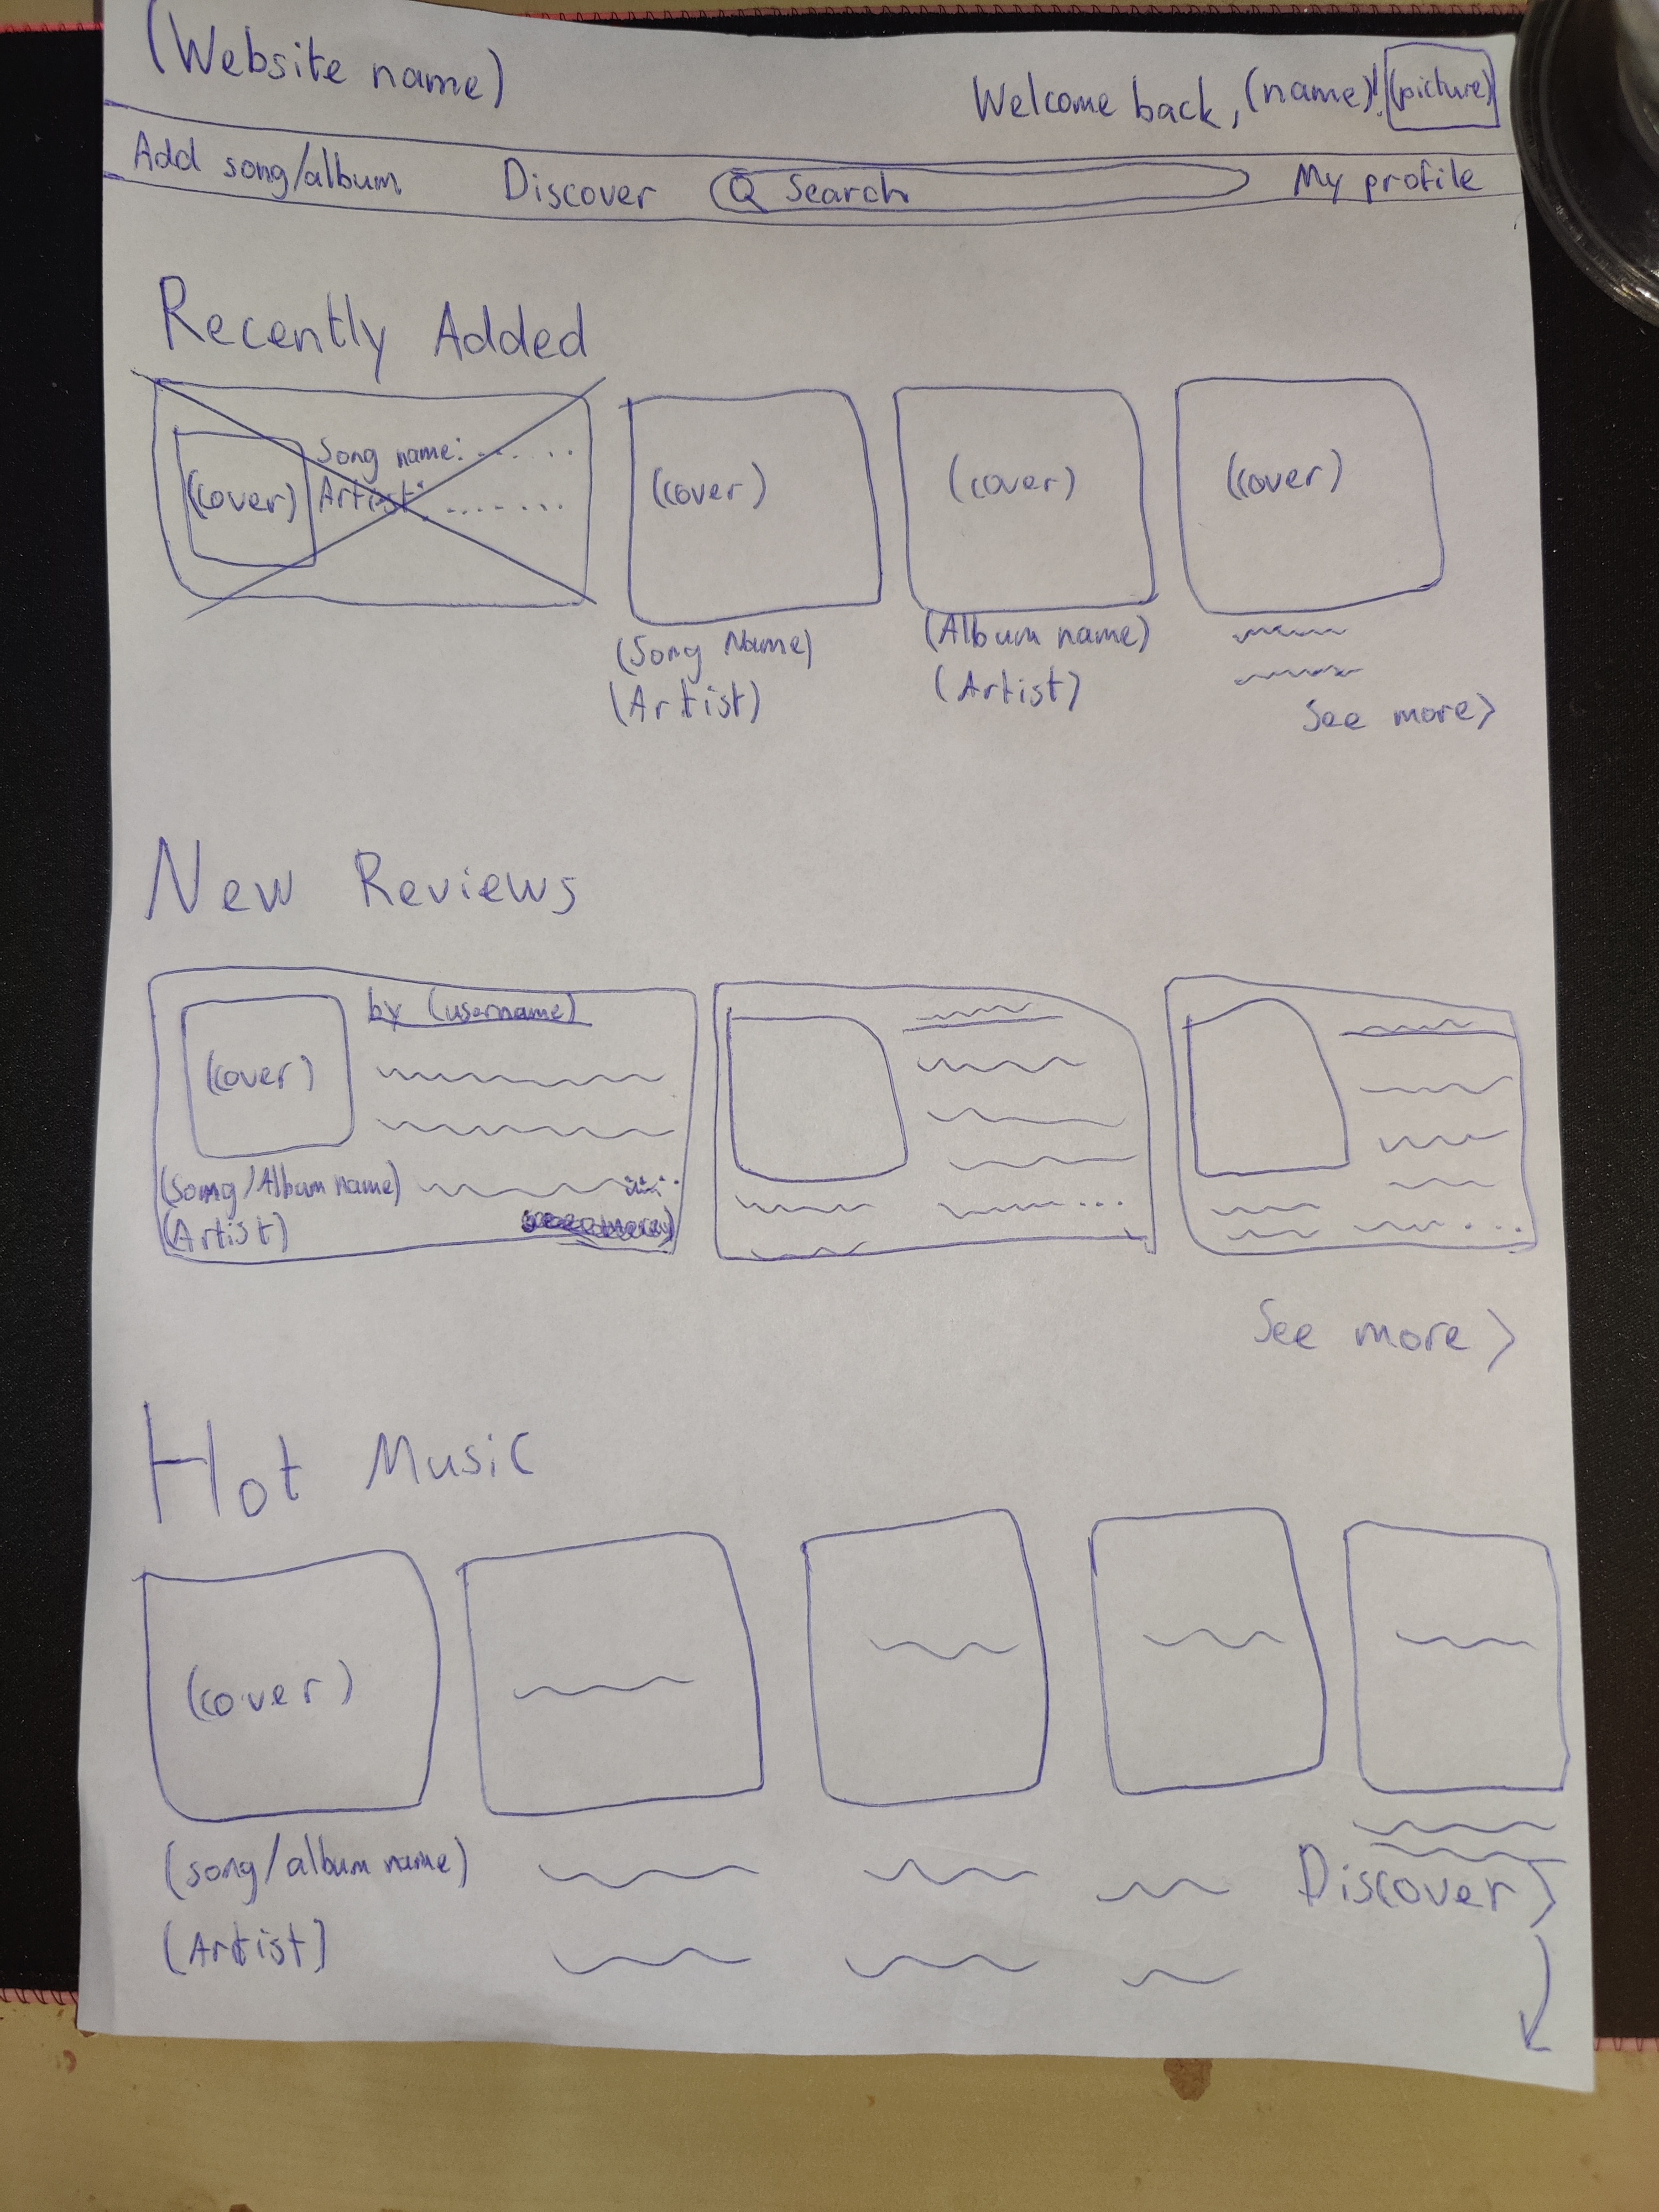 (Website name)
Welcome back, (name)! (picture)
Add song/album Discover Search My profile
Recently Added
(cover) Song name: ......
Artist: .......
(cover) (cover) (cover)
(Song Name) (Album name)
(Artist) (Artist)
See more>
New Reviews
(cover) by (username)
(Song/Album name)
(Artist)
See more >
Hot Music
(cover)
(song/album name)
(Artist)
Discover >